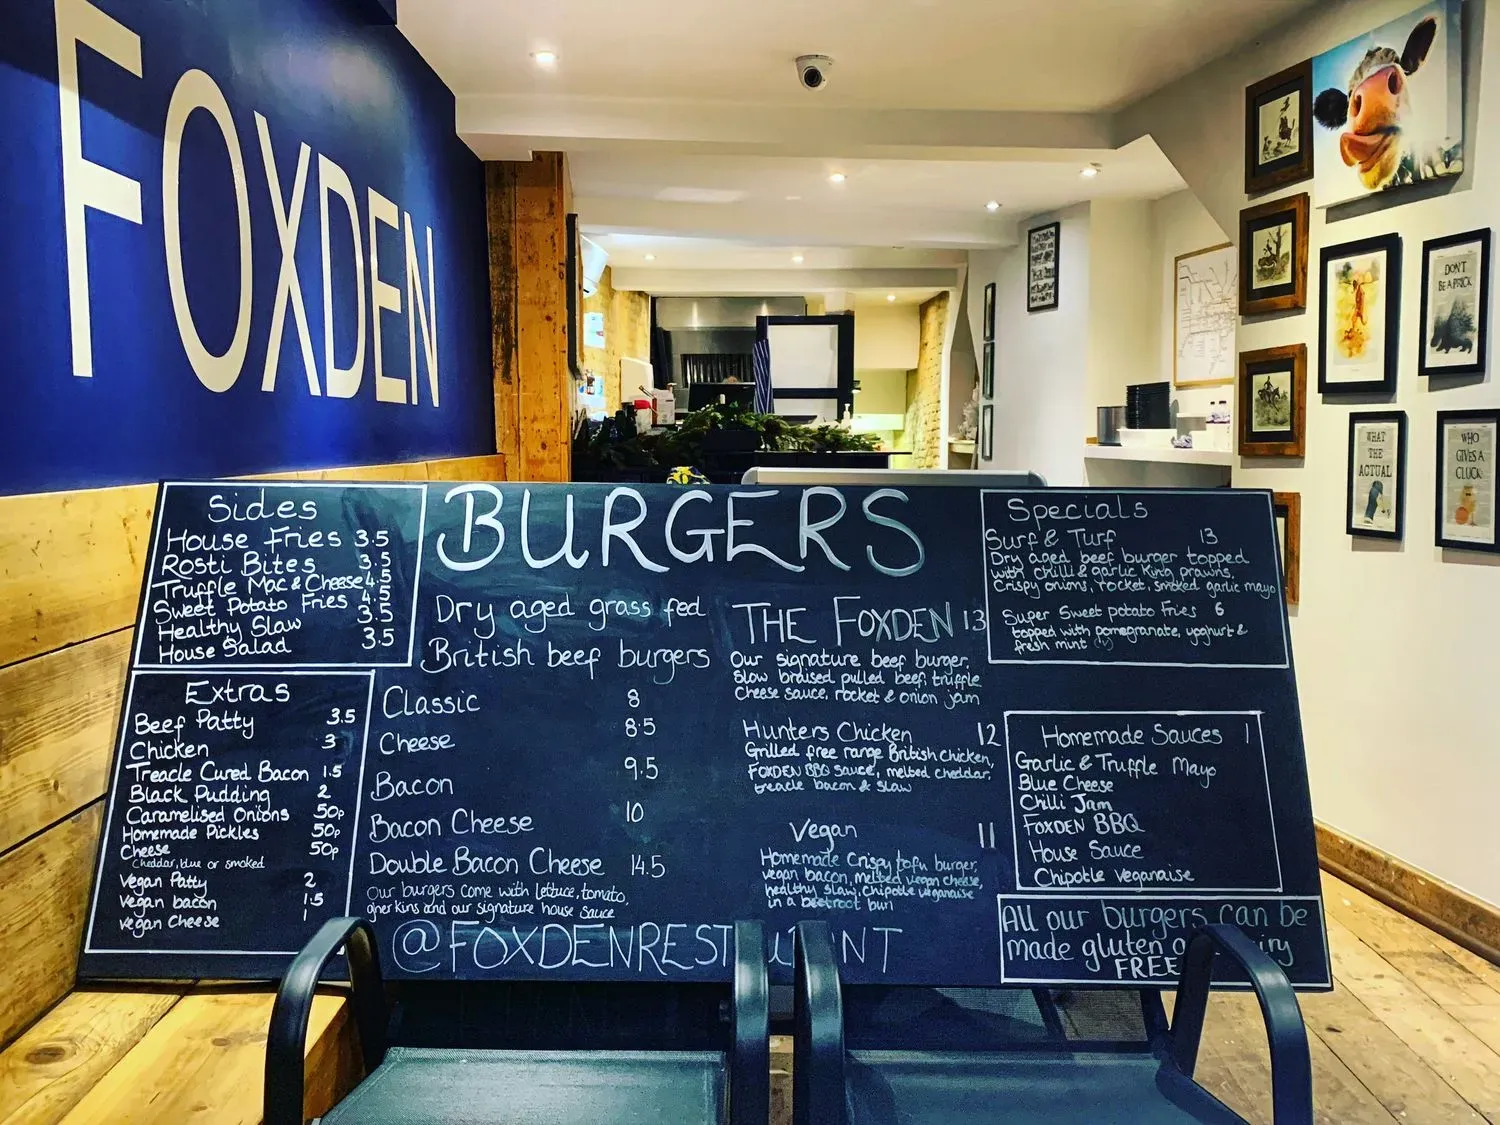 FOXDEN
DON'T
BE A PRICK
WHAT
THE
ACTUAL
WHO
GIVES A
CLUCK
Sides
House Fries 3.5
Rosti Bites 3.5
Truffle Mac & Cheese 4.5
Sweet Potato Fries 4.5
Healthy Slaw 3.5
House Salad 3.5
Extras
Beef Patty 3.5
Chicken 3
Treacle Cured Bacon 1.5
Black Pudding 2
Caramelised Onions 50p
Homemade Pickles 50p
Cheese 50p
Cheddar, blue or smoked
Vegan Patty 2
Vegan bacon 1.5
Vegan Cheese 1
BURGERS
Dry aged grass fed
British beef burgers
Classic 8
Cheese 8.5
Bacon 9.5
Bacon Cheese 10
Double Bacon Cheese 14.5
Our burgers come with lettuce, tomato,
gherkins and our signature house sauce
THE FOXDEN 13
Our signature beef burger,
slow braised pulled beef, truffle
cheese sauce, rocket & onion jam
Hunters Chicken 12
Grilled free range British chicken,
FOXDEN BBQ sauce, melted cheddar,
treacle bacon & slaw
Vegan 11
Homemade Crispy tofu burger,
vegan bacon, melted vegan cheese,
healthy slaw, chipotle veganaise
in a beetroot bun
@FOXDENREST NT
Specials
Surf & Turf 13
Dry aged beef burger topped
with chilli & garlic king prawns,
Crispy onions, rocket, smoked garlic mayo
Super Sweet potato Fries 6
topped with pomegranate, yoghurt &
fresh mint (v)
Homemade Sauces 1
Garlic & Truffle Mayo
Blue Cheese
Chilli Jam
FOXDEN BBQ
House Sauce
Chipotle Veganaise
All our burgers can be
made gluten iry
FREE